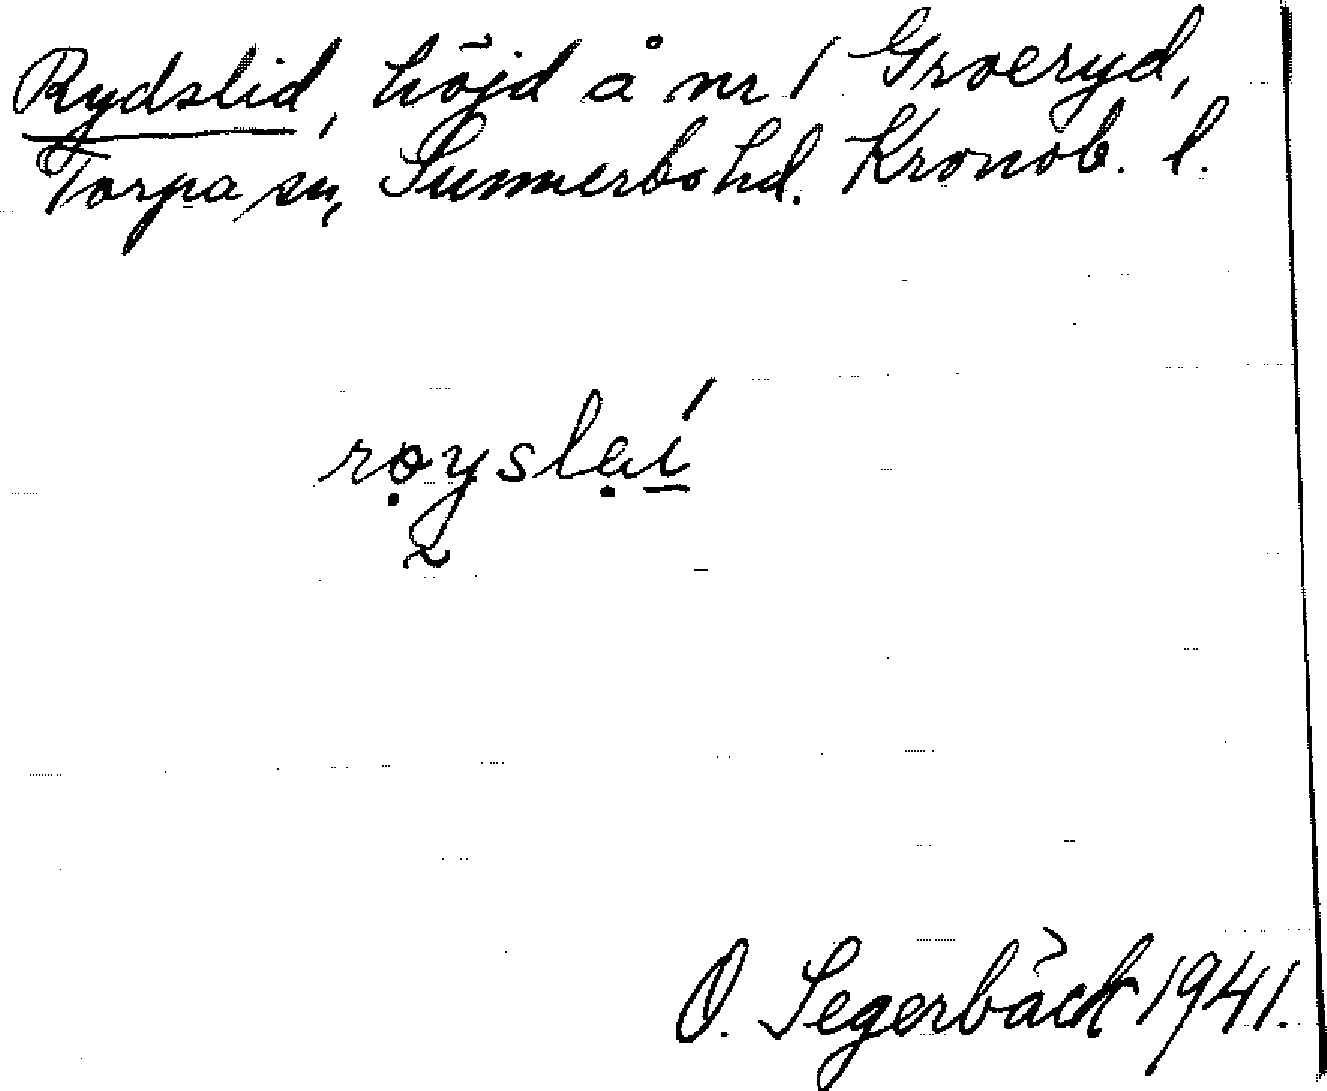 Rydslid, höjd å nr 1 Groeryd,
Torpa sn, Sunnerbo hd. Kronob. l.
rọyslẹí̲
O. Segerbäck 1941.